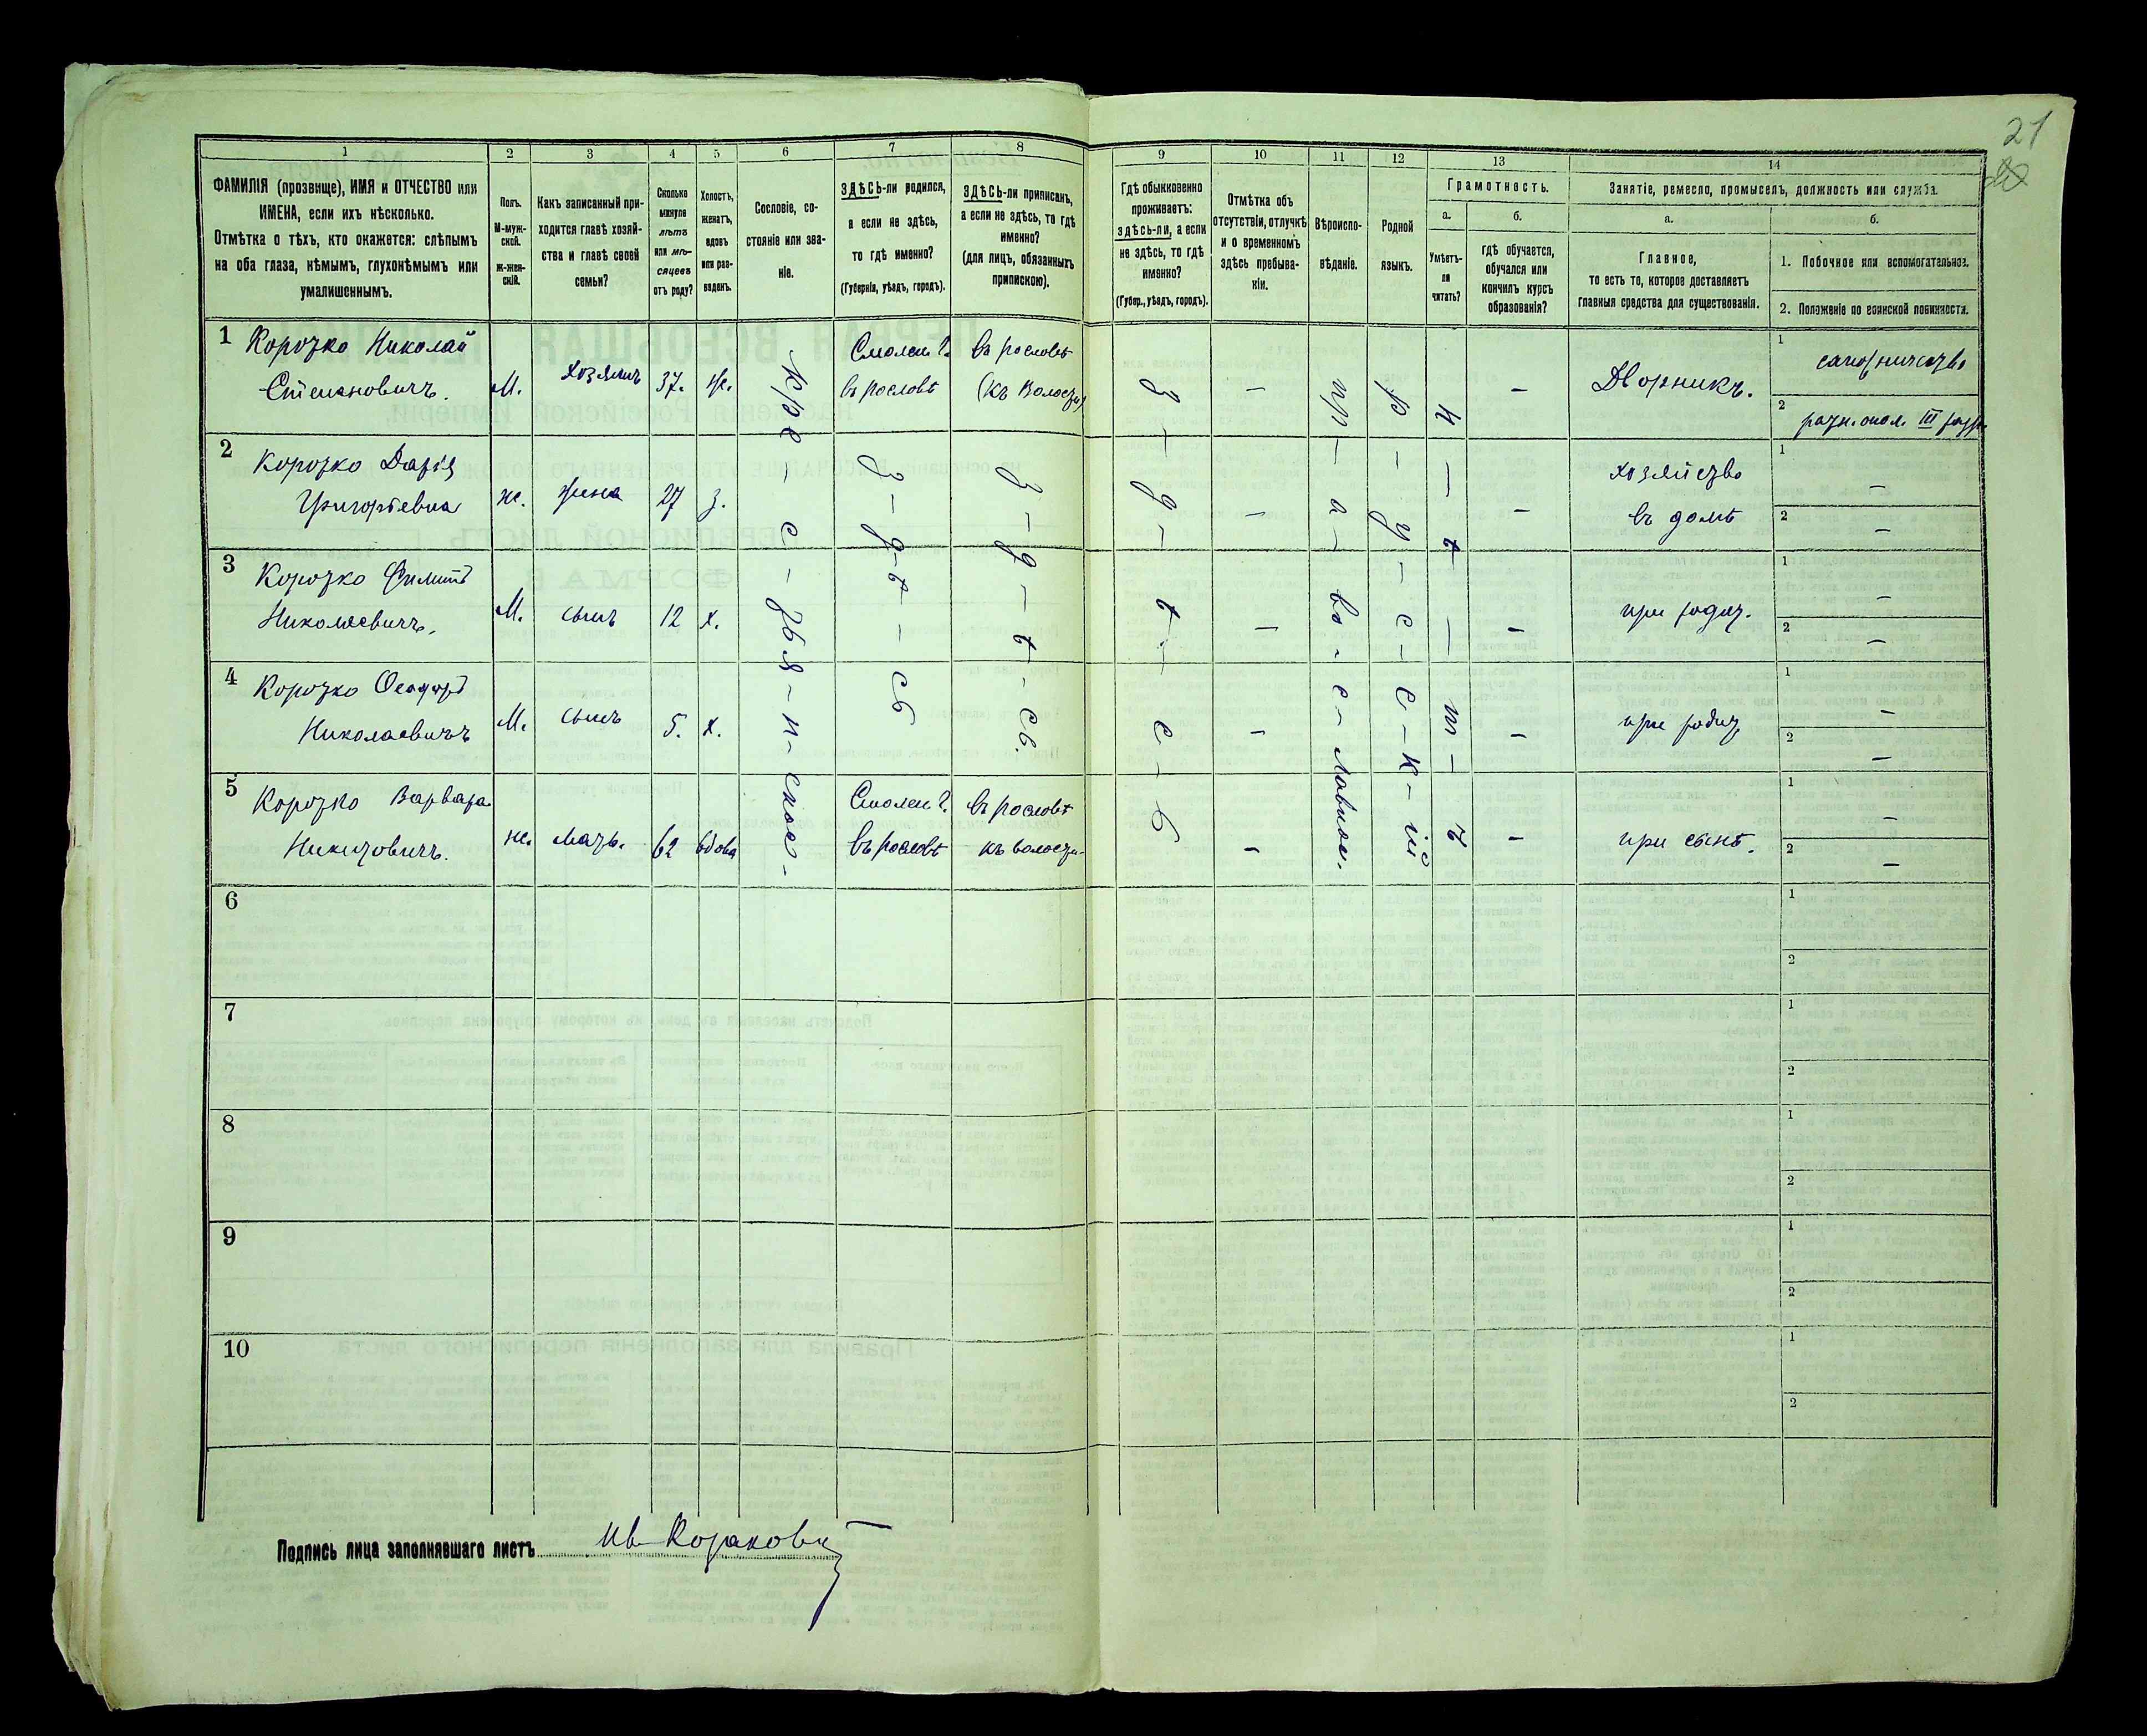 21
20
1 2 3 4 5 6 7 8 9 10 11 12 13 14
ФАМИЛІЯ (прозвище), ИМЯ и ОТЧЕСТВО или
ИМЕНА, если ихъ нѣсколько.
Отмѣтка о тѣхъ, кто окажется: слѣпымъ
на оба глаза, нѣмымъ, глухонѣмымъ или
умалишеннымъ.
Полъ.
М-муж-
ской.
ж-жен-
скій.
Какъ записанный при-
ходится главѣ хозяй-
ства и главѣ своей
семьи?
Сколько
минуло
лѣтъ
или мѣ-
сяцевъ
отъ роду?
Холостъ,
женатъ,
вдовъ
или раз-
веденъ.
Сословіе, со-
стояніе или зва-
ніе.
ЗДѢСЬ-ли родился,
а если не здѣсь,
то гдѣ именно?
(Губернія, уѣздъ, городъ).
ЗДѢСЬ-ли приписанъ,
а если не здѣсь, то гдѣ
именно?
(для лицъ, обязанныхъ
припискою).
Гдѣ обыкновенно
проживаетъ:
здѣсь-ли, а если
не здѣсь, то гдѣ
именно?
(Губер., уѣздъ, городъ).
Отмѣтка объ
отсутствіи, отлучкѣ
и о временномъ
здѣсь пребыва-
ніи.
Вѣроиспо-
вѣданіе.
Родной
языкъ.
Грамотность.
а.
Умѣетъ-
ли
читать?
б.
гдѣ обучается,
обучался или
кончилъ курсъ
образованія?
Занятіе, ремесло, промыселъ, должность или служба.
а.
Главное,
то есть то, которое доставляетъ
главныя средства для существованія.
б.
1. Побочное или вспомогательное.
2. Положеніе по воинской повинности.
1 Коротко Николай
Степановичъ. М. хозяинъ 37. ж.
Смолен г.
въ рословѣ
въ рословѣ
(къ волости)
– – Дворникъ.
1 сапожничество
2 ратн. опол. III разр.
2 Коротко Дарія
Григорьевна ж. жена 27 з. – –
хозяйство
въ домѣ
1 –
2 –
3 Коротко Филипъ
Николаевичъ. М. сынъ 12 х. – – при родит.
1 –
2 –
4 Коротко Ѳеодоръ
Николаевичъ М. сынъ 5. х. – – при родит.
1 –
2 –
5 Коротко Варвара
Никитовичъ. ж. мать. 62 вдова
Смолен г.
въ рословѣ
въ рословѣ
къ волости
– – при сынѣ.
1 –
2 –
кре – с – тья – н – ское –
з – д – ѣ – сь
з – д – ѣ – сь.
з – д – ѣ – с – ь
пр – а – во – с – лавное.
р – у – с – с – к – ій
н – ѣ – т – ъ
6 1 2
7 1 2
8 1 2
9 1 2
10 1 2
Подпись лица заполнявшаго листъ